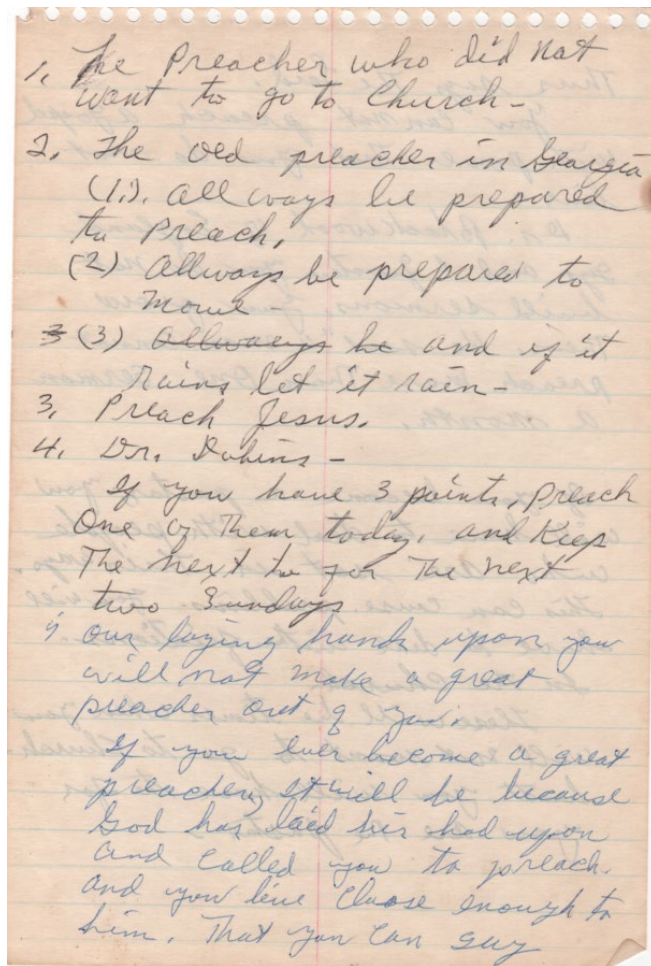 1. The Preacher who did not
want to go to Church -
2. The old preacher in Georgia
(1.). all ways be prepared
to Preach,
(2) Allways be prepared to
move -
3 (3) Allways be and if it
rains let it rain -
3. Preach Jesus.
4. Dr. Dobins -
If you have 3 points, Preach
One of Them today, and Keep
The next two for The next
two Sundays
our laying hands upon you
will not make a great
preacher out of you.
If you ever become a great
preacher, It will be because
God has laid his had upon
and called you to preach.
and you live Cloose enough to
him. That you Can say